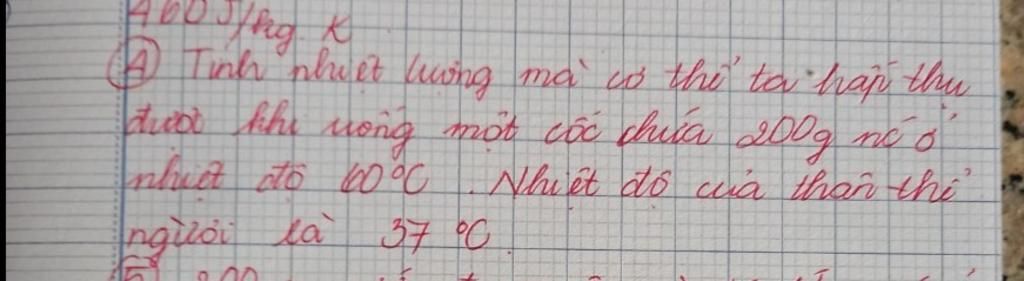 460J/kg.K
(4) Tính nhiệt lượng mà cơ thể ta hấp thu
được khi uống một cốc chứa 200g nc ở
nhiệt độ 60°C. Nhiệt độ của thân thể
người là 37 °C.